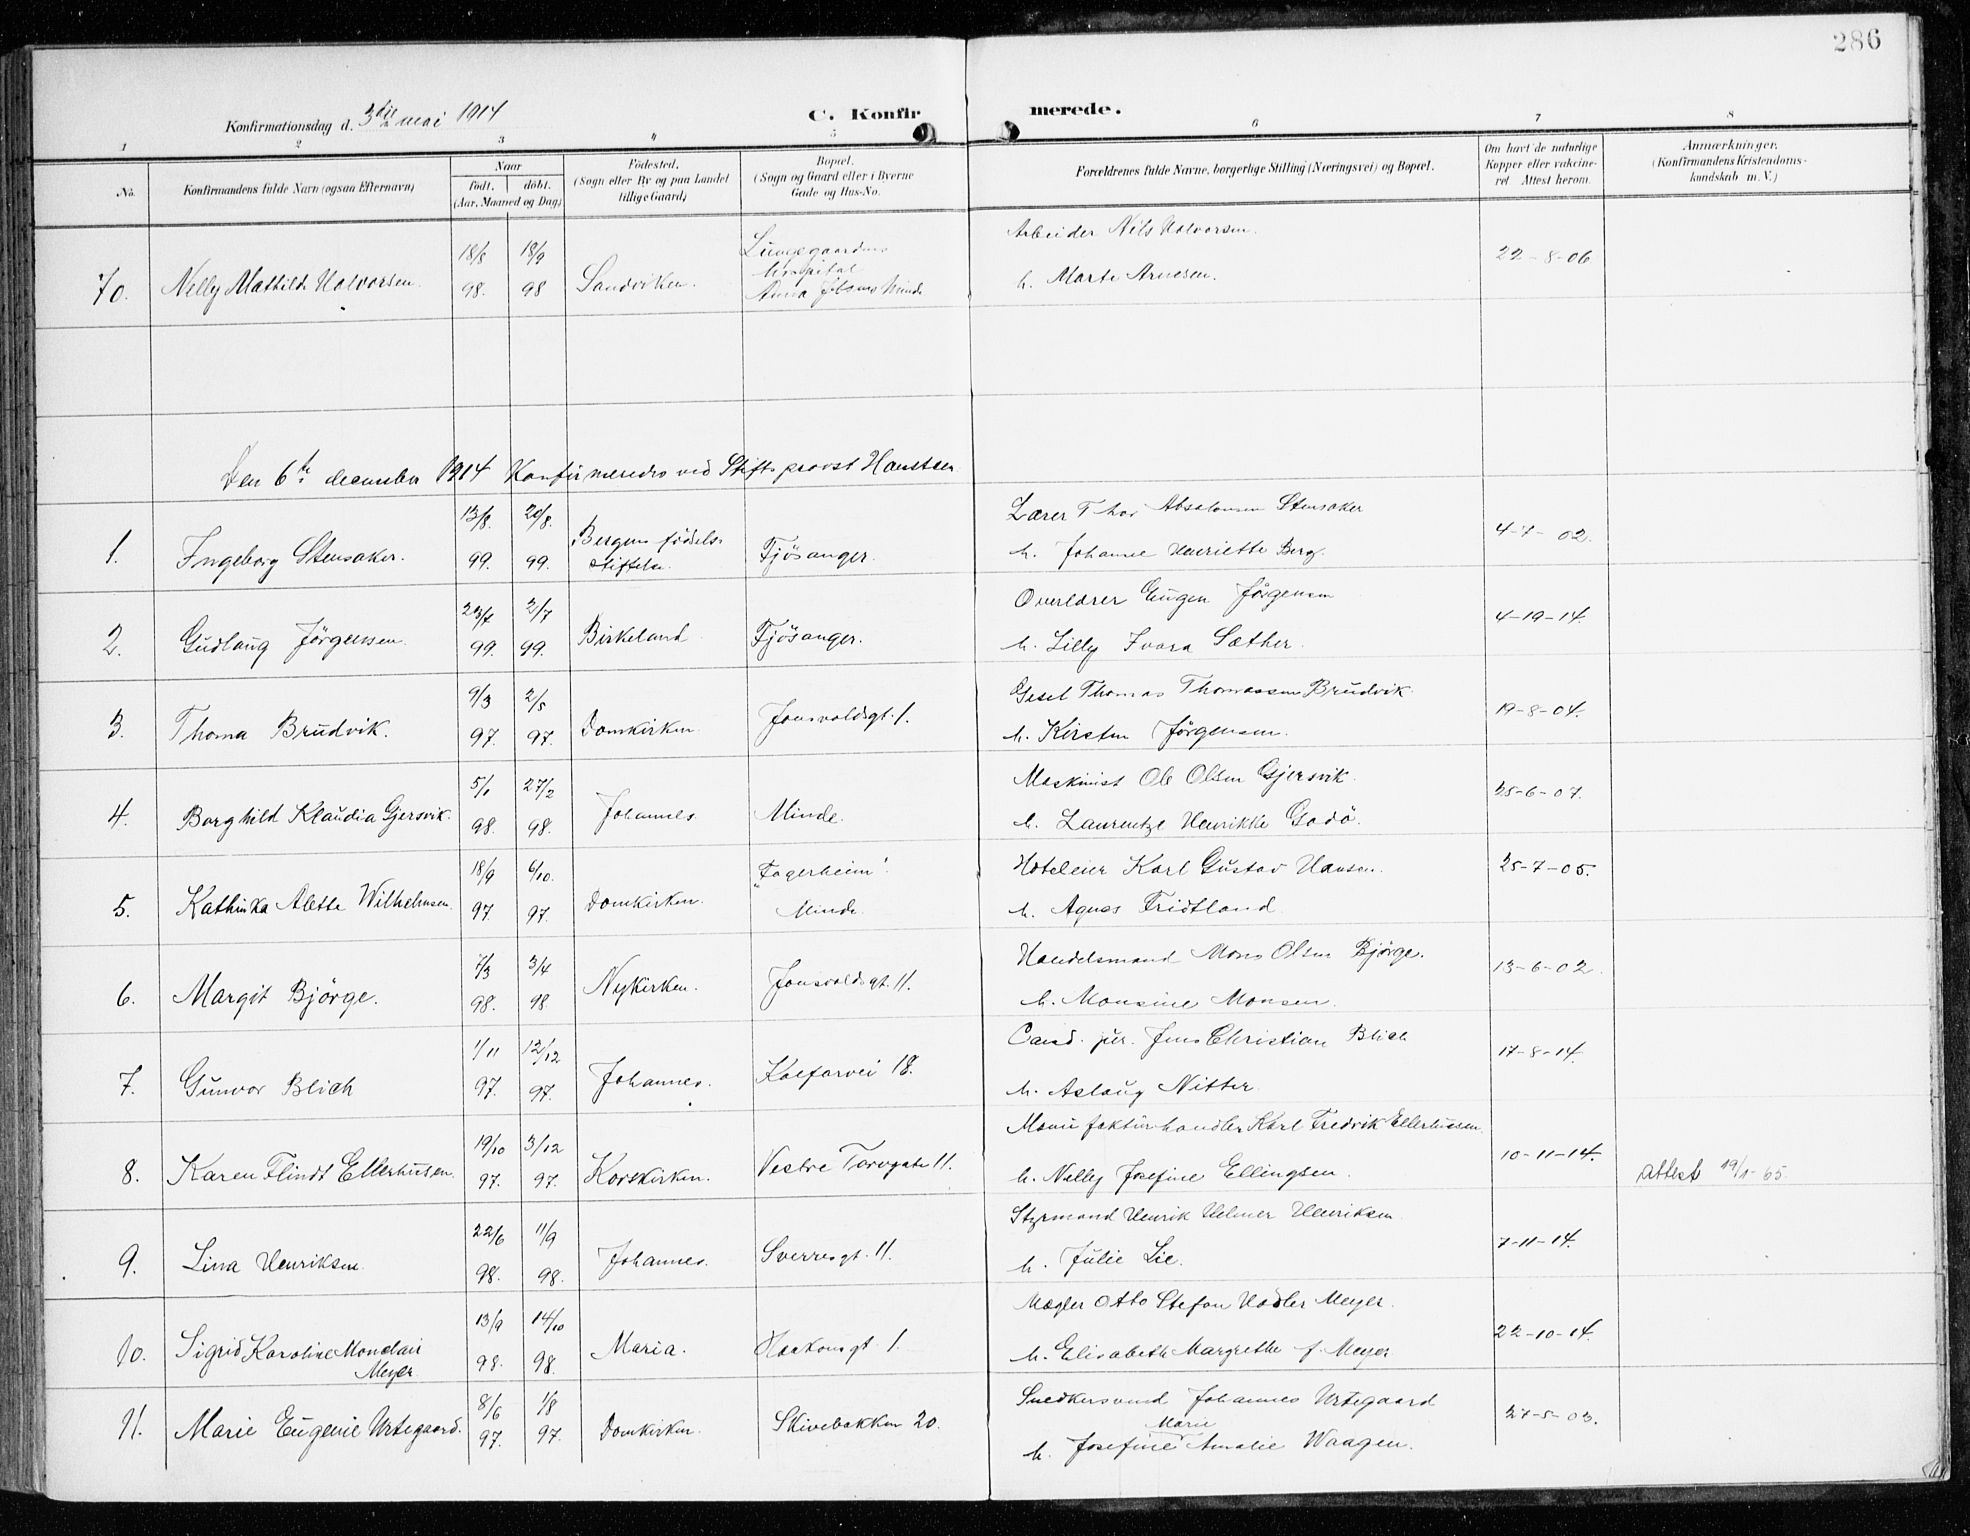 286
Konfirmationsdag d. 3die mai 1914
C. Konfirmerede.
1 2 3 4 5 6 7 8
No.
Konfirmandens fulde Navn (ogsaa Efternavn)
Naar
født. døbt.
(Aar, Maaned og Dag)
Fødested.
(Sogn eller By og paa Landet
tillige Gaard)
Bopæl.
(Sogn og Gaard eller i Byerne
Gade og Hus-No.
Forældrenes fulde Navne, borgerlige Stilling (Næringsvei) og Bopæl.
Om havt de naturlige
Kopper eller vakcine-
ret. Attest herom.
Anmærkninger.
(Konfirmandens Kristendoms-
kundskab m. V.)
70. Nelly Mathilde Halvorsen. 18/8 98. 18/9 98 Sandviken. Lungegaardens
hospital
Anna Jebsens Minde
Arbeider Nils Halvorsen.
h. Marte Arnesen.
22-8-06
Den 6te december 1914 Konfirmeredes ved Stiftsprovst Hansteen
1. Ingeborg Stensaker. 13/8. 99. 20/8. 99. Bergens fødels-
stiftelse. Fjösanger.
Lærer Thor Absalonsen Stensaker
h. Johanne Henriette Berg.
4-7-02.
2. Gudlaug Jörgensen. 99. 2/7 99. Birkeland Fjösanger.
Overlærer Eugen Jörgensen
h. Lilly Ivara Sæther.
4-19-14.
3. Thoma Brudvik. 9/3 97. 2/5 97. Domkirken. Jonsvoldsgt. 1.
Gesel Thomas Thomassen Brudvik.
h. Kirsten Jörgensen.
19-8-04.
4. Borghild Klaudia Gjersvik. 5/1 98. 27/2 98. Johannes Minde.
Maskinist Ole Olsen Gjersvik.
h. Laurentze Henrikke Godö.
25-6-07.
5. Kathinka Alette Wilhelmsen. 18/9 97. 6/10. 97. Domkirken. "Fagerheim".
Minde.
Hoteleier Karl Gustav Hansen.
h. Agnes Fridtland.
25-7-05.
6. Margit Björge. 7/3 98. 3/4 98. Nykirken. Jonsvoldsgt. 11.
Handelsmand Mons Olsen Björge.
h. Monsine Monsen.
13-6-02.
7. Gunvor Blich 1/11 97. 12/12 97. Johannes. Kalfarvei 18.
Cand. jur. Jens Christian Blich
h. Aslaug Nitter.
17-8-14.
8. Karen Flindt Ellerhusen. 19/10 97. 3/12 97. Korskirken. Vestre Torvgate 11.
Manufakturhandler Karl Fredrik Ellerhusen.
h. Nelly Josefine Ellingsen.
10-11-14.
attest 19/1-65.
9. Lina Henriksen. 22/6 98. 11/9 98. Johannes. Sverresgt. 11.
Styrmand Henrik Helmer Henriksen.
h. Julie Lie.
7-11-14.
10. Sigrid Karoline Monclair
Meyer. 13/9 98. 14/10 98. Maria. Haakonsgt. 1.
Mægler Otto Stefan Hadler Meyer.
h. Elisabeth Margrethe f. Meyer
22-10-14.
11. Marie Eugenie Urtegaard. 8/6 97. 1/8 97. Domkirken. Skivebakken 20.
Snedkersvend Johannes Urtegaard
Marie
h. Josefine Amalie Waagen.
27-5-03.